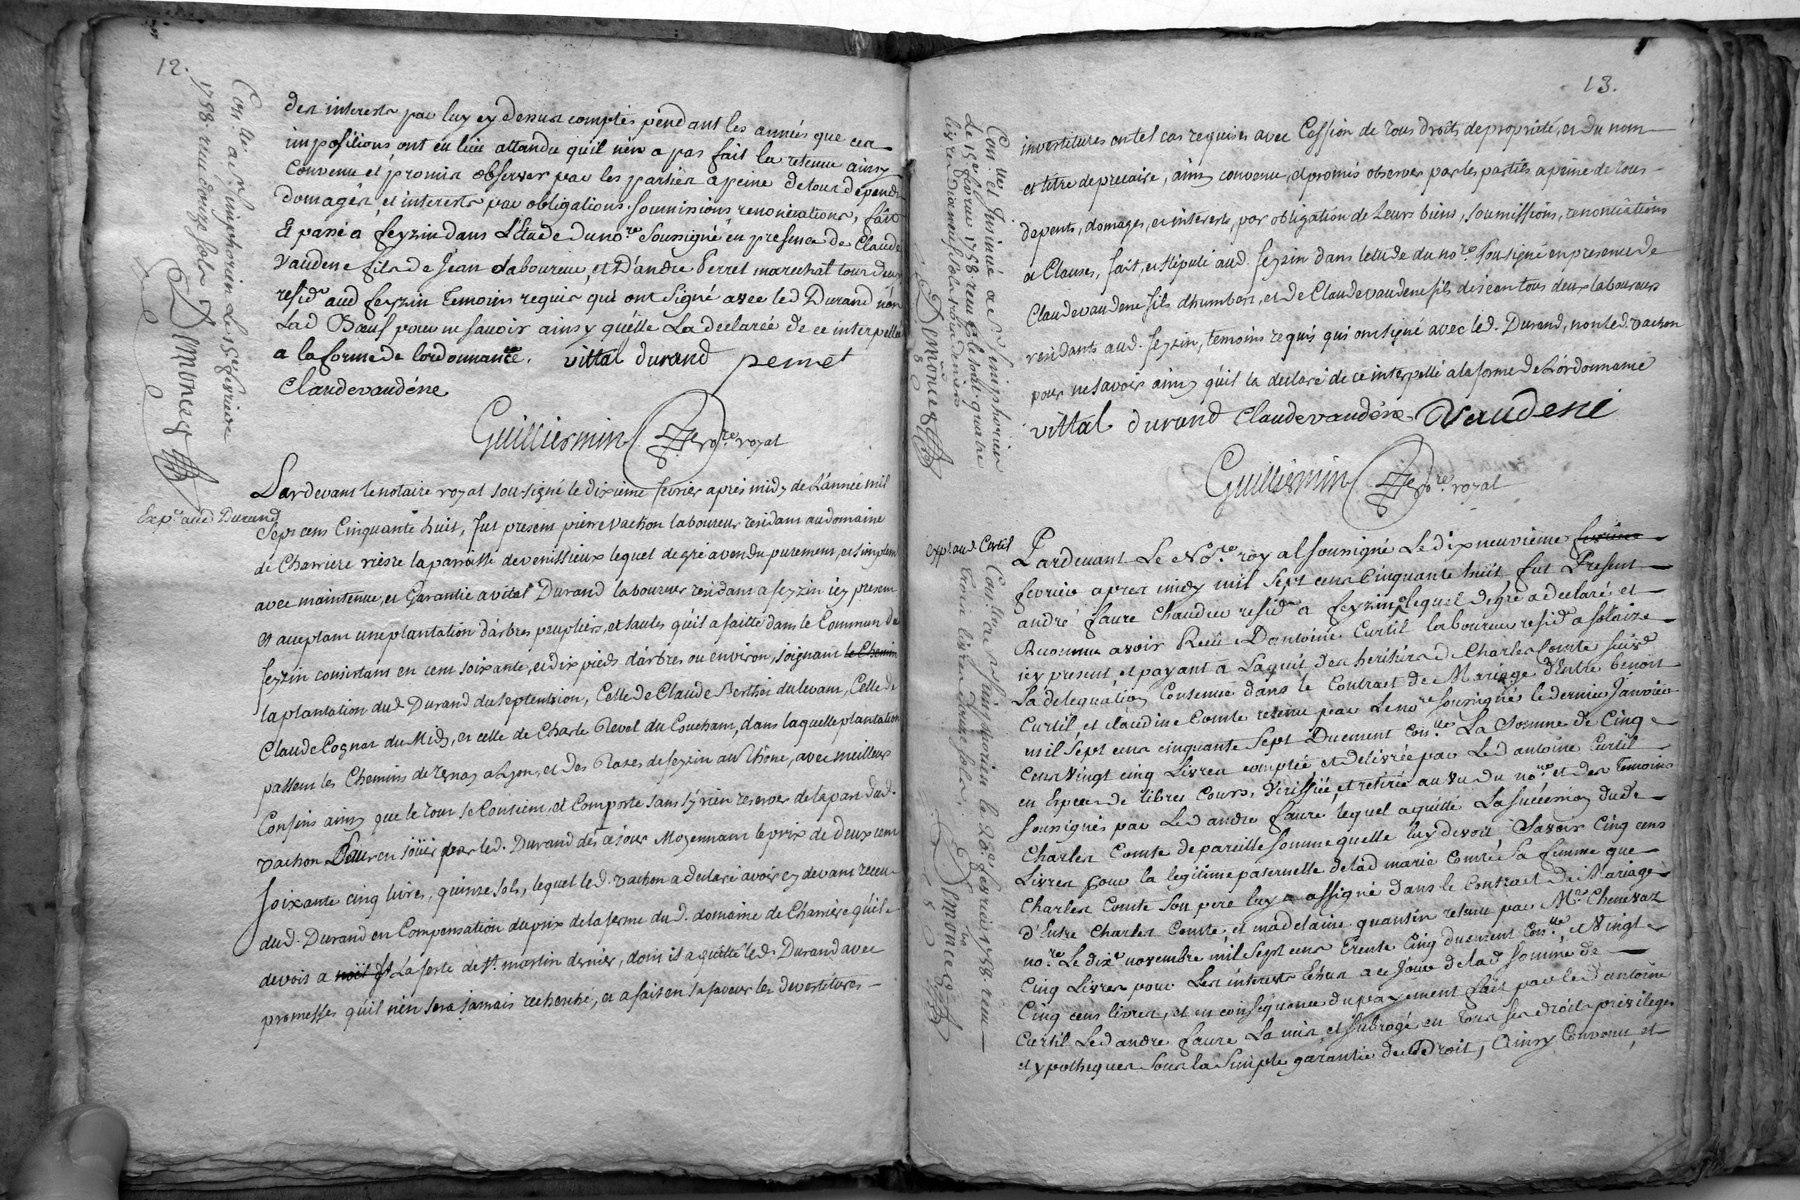 12.
Con.lle a S.t Simphorien Le 15.e fevrier
1758. reçu douze sols
Demonceg
des interests par luy cy dessus comptés pendant les années que ces
impositions ont eu lieu attandu qu'il n'en a pas fait la retenue ainsy
Convenu et promis observer par les parties a peine de tous depends
domages, et interests par obligations soumissions renonciations, fait
Et passé a feyzin dans L'Etude du no.re Soussigné en presence de Claude
Vaudene fils de Jean Laboureur, et D'andré Perret marechal tous deux
resid.s aud feyzin Temoins requis qui ont signé avec led Durand non
Lad Bœuf pour ne savoir ainsy qu'elle La declarée de ce interpellé
a la forme de lordonnance. vittal durand perret
Claudevaudéne
Guilliermin no.re royal
Exp.é aud Durand
Pardevant le notaire royal sousigné le dixieme fevrier après midy de L'année mil
Sept cens Cinquante huit, fut present pierre vachon laboureur residant au domaine
de Charriere riesre la paroisse de venissieux lequel de gré a vendu purement, et simplem
avec maintenue, et Garantie a vital Durand laboureur residant a feyzin icy present
et acceptant une plantation d'arbres peupliers, et saules qu'il a faitte dans le Commun de
feyzin consistant en cent soixante, et dix pieds d'arbres ou environ, joignant le Chemin
la plantation dud Durand du septentrion, Celle de Claude Berthet du levant, Celle de
Claude Cognat du Midy, et celle de Charle Revol du Couchant, dans laquelle plantation
passent les Chemins de ternay a Lyon, et des Rases de feyzin au Rhône, avec meilleurs
Confins ainsy que le tout se Contient, et Comporte sans s'y rien reserver de la part dud.
vachon Pour en joüir par led. Durand dès a jour Moyennant le prix de deux cent
soixante cinq livres, quinze sols, lequel led. vachon a declaré avoir cy devant receu
dud. Durand en Compensation du prix de la ferme du d. domaine de Charriere qu'il
devoit a noël Js La feste de s.t martin dernier, dont il a quitté led. Durand avec
promesses qu'il n'en sera jamais recherché, et a fait en sa faveur les devestitures
13.
Con.lle et Insinué a S.t Simphorien
Le 15.e fevrier 1758 reçu
Demonceg
investitures en tel cas requises avec Cession de tous droits de proprieté, et du nom
et titre de precaire, ainsy convenu, et promis observer par les parties a peine de tous
depents, domages, et interests, par obligation de Leurs biens, soumissions, renontiations
et Clauses, fait, et stipulé aud. feyzin dans letude du no.re sousigné en presence de
Claude vaudene fils d'humbert, et de Claude vaudene fils de jean tous deux laboureurs
residants aud. feyzin, temoins requis qui ont signé avec led. Durand, non led. vachon
pour ne savoir ainsy qu'il la declaré de ce interpellé a la forme de L'ordonnance
vittal durand Claudevaudéne Vaudene
Guilliermin no.re royal
Exp.é aud Curtil
Con.lle a S.t Simphorien le 20.e fevrier 1758. reçu
trois livres douze sols
Demonceg
Pardevant Le No.re royal soussigné Le dixneuvième fevrier
fevrier apres midy mil sept cens Cinquante huit, fut Present
andré faure Chaudier resid.t a feyzin lequel de gré a declaré, et
Reconnu avoir Receu D'antoine Curtil laboureur resid.t a solaize
icy present, et payant à Laquit des heritiers de Charles Comte suiv.t
La delegation Contenue dans le Contract de Mariage D'entre benoit
Curtil, et claudine Comte retenu par le no.re soussigné le dernier Janvier
mil sept cens cinquante sept Duement con.llé La Somme de Cinq
Cens Vingt cinq Livres comptée et delivrée par Led antoine Curtil
en Especes de libres Cours, verifiée, et retirée au vu du no.re et des Temoins
soussignés par Led andre faure lequel aquitté La succession dud
Charles Comte de pareille somme quelle luy devoit Savoir Cinq cens
Livres pour la legitime paternelle de lad marie Comte sa femme que
Charles Comte son pere luy a assigné dans le Contract de Mariage
d'Entre Charles Comte, et madelaine quantin retenu par M.e Chenevaz
no.re Le dix.e novembre mil sept cens trente Cinq duement Con.llé et Vingt
Cinq Livres pour Les interests Echus a ce jour de lad somme de
Cinq cens livres, et en consequence du payement fait par led antoine
Curtil Led andre faure La mis, et subrogé en tous ses droits privileges
et ypotheques sous la simple garantie de Droit, Ainsy Convenu, et